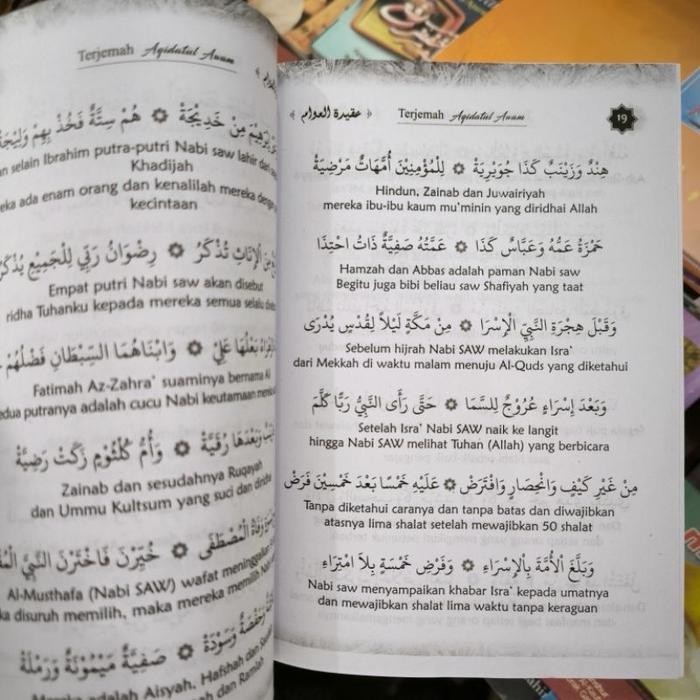 Terjemah Aqidatul Awam
هُمْ سِتَّةٌ فَخُذْ بِهِمْ ۞ مِنْ خَدِيْجَةٍ
selain Ibrahim putra-putri Nabi saw lahir dari
Khadijah
ada enam orang dan kenalilah mereka
kecintaan
الْإِنَاثِ تُذْكَرُ ۞ رِضْوَانُ رَبِّي لِلْجَمِيْعِ يُذْكَرُ
Empat putri Nabi saw akan disebut
ridha Tuhanku kepada mereka semua
بَعْلُهَا عَلِيْ ۞ وَابْنَاهُمَا السِّبْطَانِ فَضْلُهُمْ
Fatimah Az-Zahra' suaminya bernama Ali
kedua putranya adalah cucu Nabi keutamaan
وَبَعْدَهَا رُقَيَّةْ ۞ وَأُمُّ كُلْثُوْمٍ زَكَتْ رَضِيَّةْ
Zainab dan sesudahnya Ruqayah
dan Ummu Kultsum yang suci dan diridhai
وَفَاةُ الْمُصْطَفَى ۞ خُيِّرْنَ فَاخْتَرْنَ النَّبِيَّ
Al-Musthafa (Nabi SAW) wafat
disuruh memilih, maka mereka memilih
وَسَوْدَةْ ۞ صَفِيَّةٌ مَيْمُوْنَةٌ وَرَمْلَةْ
adalah Aisyah, Hafshah dan
dan Ramlah
عقيدة العوام
Terjemah Aqidatul Awam
19
هِنْدٌ وَزَيْنَبٌ كَذَا جُوَيْرِيَةْ ۞ لِلْمُؤْمِنِيْنَ أُمَّهَاتٌ مَرْضِيَةْ
Hindun, Zainab dan Juwairiyah
mereka ibu-ibu kaum mu'minin yang diridhai Allah
حَمْزَةُ عَمُّهُ وَعَبَّاسٌ كَذَا ۞ عَمَّتُهُ صَفِيَّةٌ ذَاتُ احْتِذَا
Hamzah dan Abbas adalah paman Nabi saw
Begitu juga bibi beliau saw Shafiyah yang taat
وَقَبْلَ هِجْرَةِ النَّبِيِّ الْإِسْرَا ۞ مِنْ مَكَّةٍ لَيْلًا لِقُدْسٍ يُدْرَى
Sebelum hijrah Nabi SAW melakukan Isra'
dari Mekkah di waktu malam menuju Al-Quds yang diketahui
وَبَعْدَ إِسْرَاءٍ عُرُوْجٌ لِلسَّمَا ۞ حَتَّى رَأَى النَّبِيُّ رَبًّا كَلَّمَ
Setelah Isra' Nabi SAW naik ke langit
hingga Nabi SAW melihat Tuhan (Allah) yang berbicara
مِنْ غَيْرِ كَيْفٍ وَانْحِصَارٍ وَافْتَرَضْ ۞ عَلَيْهِ خَمْسًا بَعْدَ خَمْسِيْنَ فَرَضْ
Tanpa diketahui caranya dan tanpa batas dan diwajibkan
atasnya lima shalat setelah mewajibkan 50 shalat
وَبَلَّغَ الْأُمَّةَ بِالْإِسْرَاءِ ۞ وَفَرْضِ خَمْسَةٍ بِلَا امْتِرَاءِ
Nabi saw menyampaikan khabar Isra' kepada umatnya
dan mewajibkan shalat lima waktu tanpa keraguan